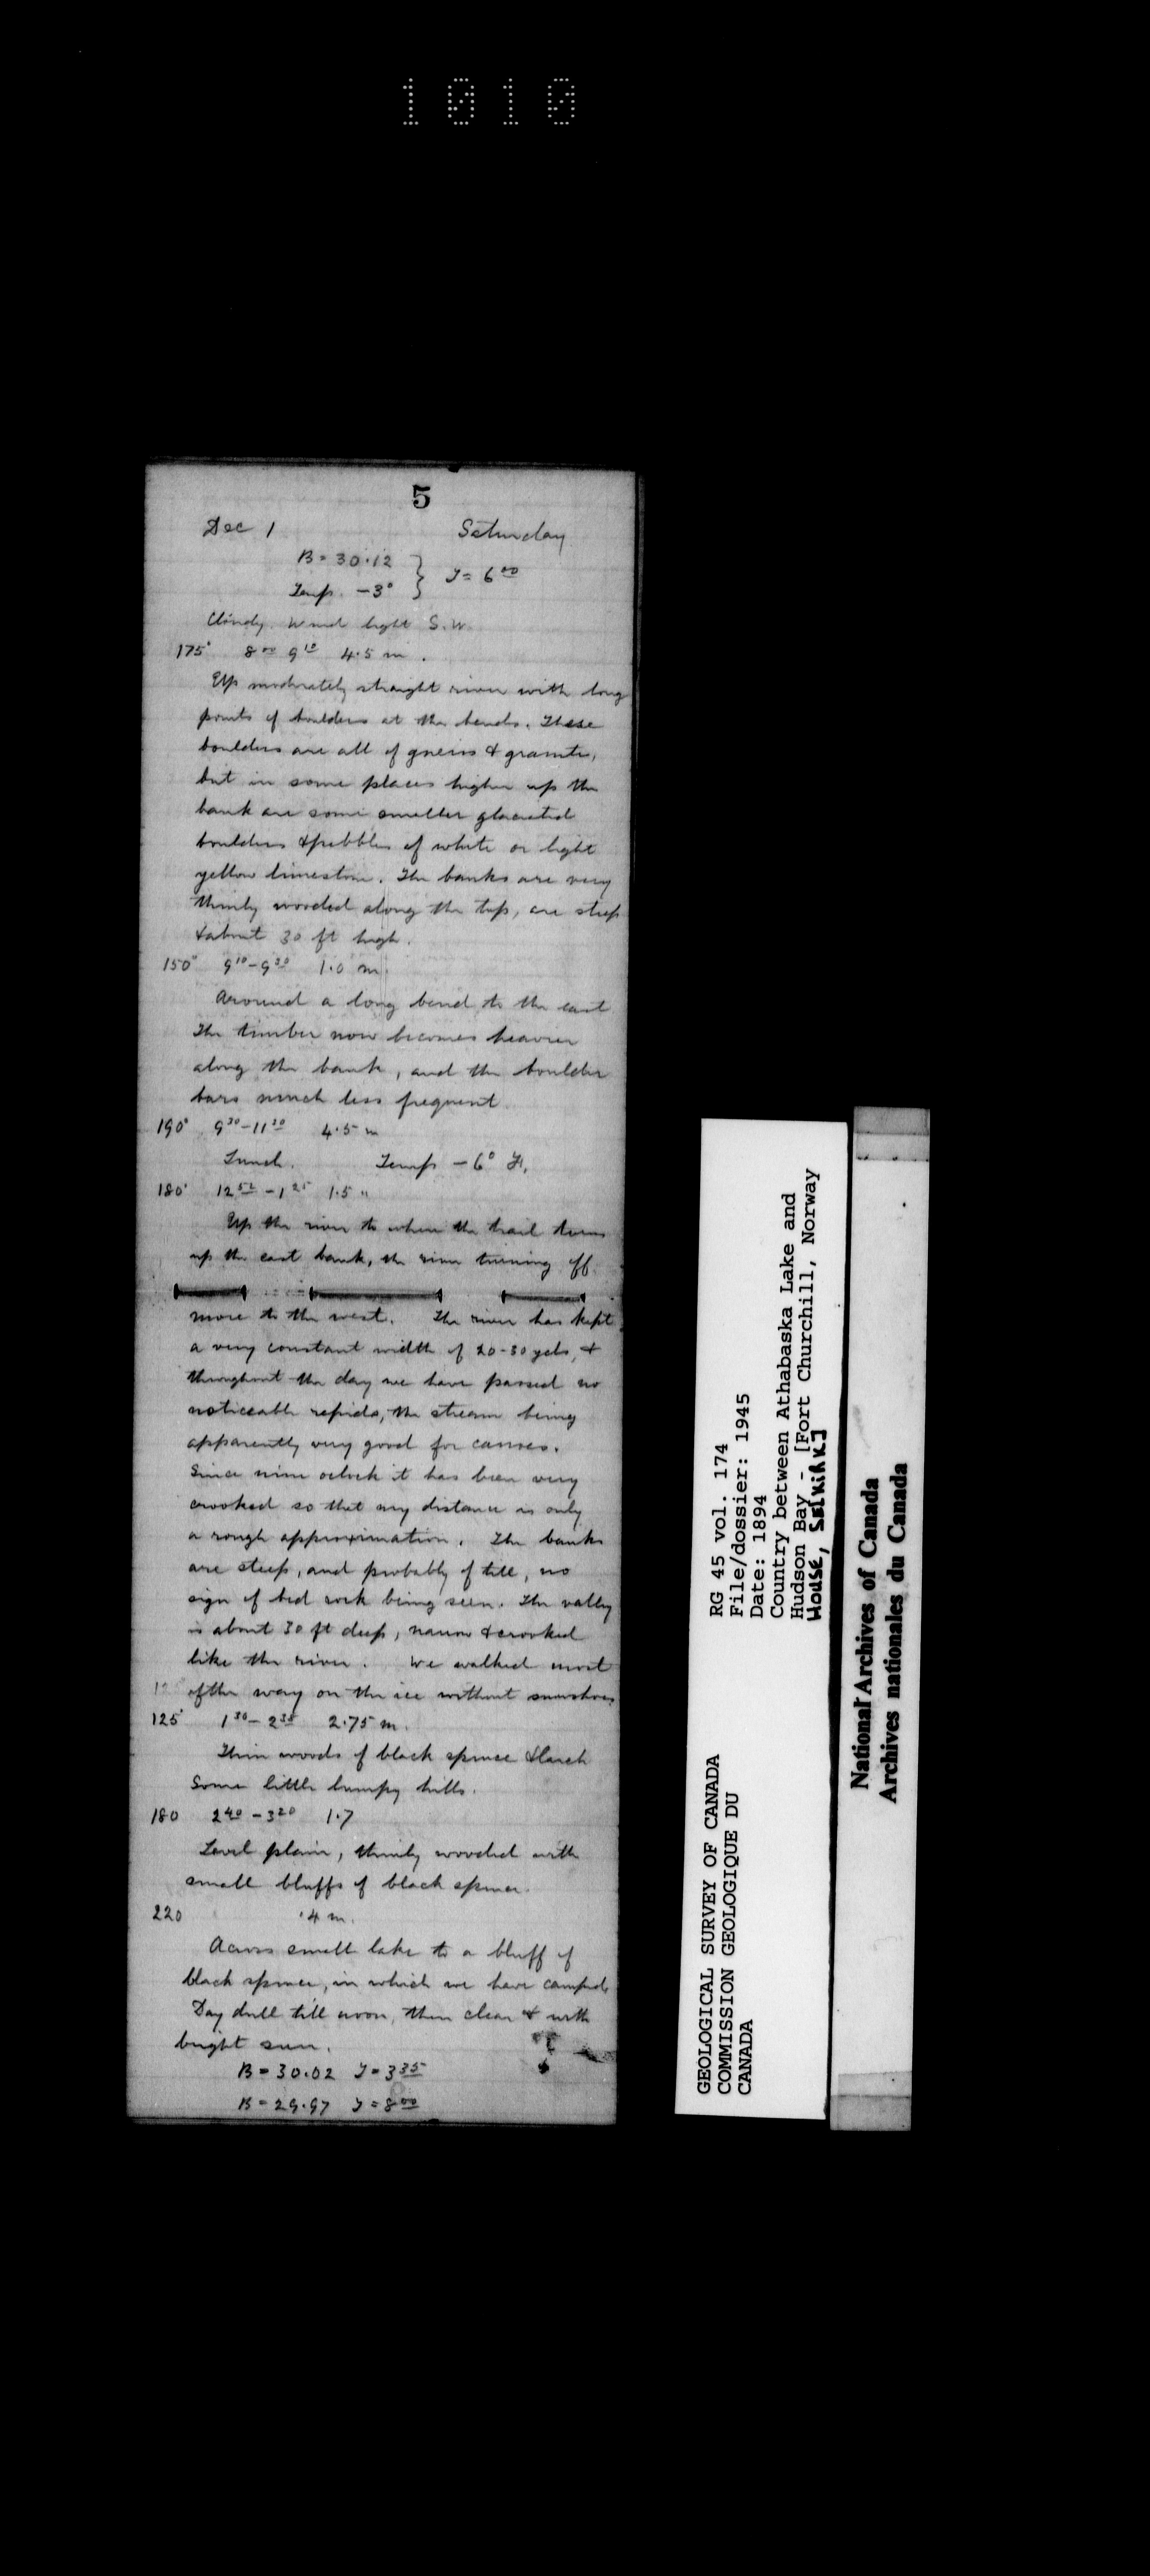 1010
5
Dec 1 Saturday
B = 30.12
Temp. -3° } T = 6 00
Cloudy. Wind light S.W.
175° 8 00 9 10 4.5 m.
Up moderately straight river with long
points of boulders at the bends. These
boulders are all of gneiss & granite,
but in some places higher up the
bank are some smaller glaciated
boulders & pebbles of white or light
yellow limestone. The banks are very
thinly wooded along the top, are steep
& about 30 ft high.
150° 9 10 - 9 30 1.0 m.
Around a long bend to the east
The timber now becomes heavier
along the bank, and the boulder
bars much less frequent
190° 9 30 - 11 30 4.5 m
Lunch. Temp -6° F.
180° 12 52 - 1 25 1.5 "
Up the river to where the trail turns
up the east bank, the river turning off
more to the west. The river has kept
a very constant width of 20-30 yds, &
throughout the day we have passed no
noticeable rapids, the stream being
apparently very good for canoes.
Since nine oclock it has been very
crooked so that my distance is only
a rough approximation. The banks
are steep, and probably of till, no
sign of bed rock being seen. The valley
is about 30 ft deep, narrow & crooked
like the river. We walked most
of the way on the ice without snowshoes
125° 1 30 - 2 35 2.75 m.
Thin woods of black spruce & larch
Some little humpy hills.
180 2 40 - 3 20 1.7
Level plain, thinly wooded with
small bluffs of black spruce.
220 .4 m.
Across small lake to a bluff of
black spruce, in which we have camped
Day dull till noon, then clear & with
bright sun.
B = 30.02 T = 3 35
B = 29.97 T = 8 00
GEOLOGICAL SURVEY OF CANADA
COMMISSION GEOLOGIQUE DU
CANADA
RG 45 vol. 174
File/dossier: 1945
Date: 1894
Country between Athabaska Lake and
Hudson Bay - [Fort Churchill, Norway
House, Selkirk]
National Archives of Canada
Archives nationales du Canada